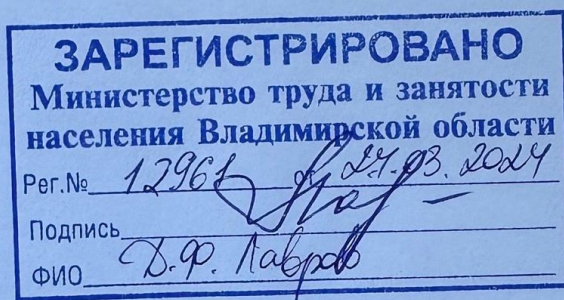 ЗАРЕГИСТРИРОВАНО
Министерство труда и занятости
населения Владимирской области
Рег.№ 12961 от 27.03.2024
Подпись
ФИО Д.Ф. Лавров